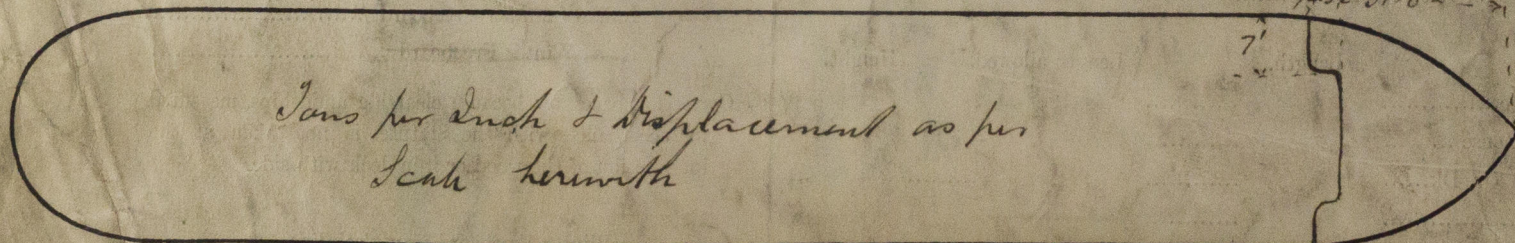 7'
Tons per Inch & Displacement as per
Scale herewith